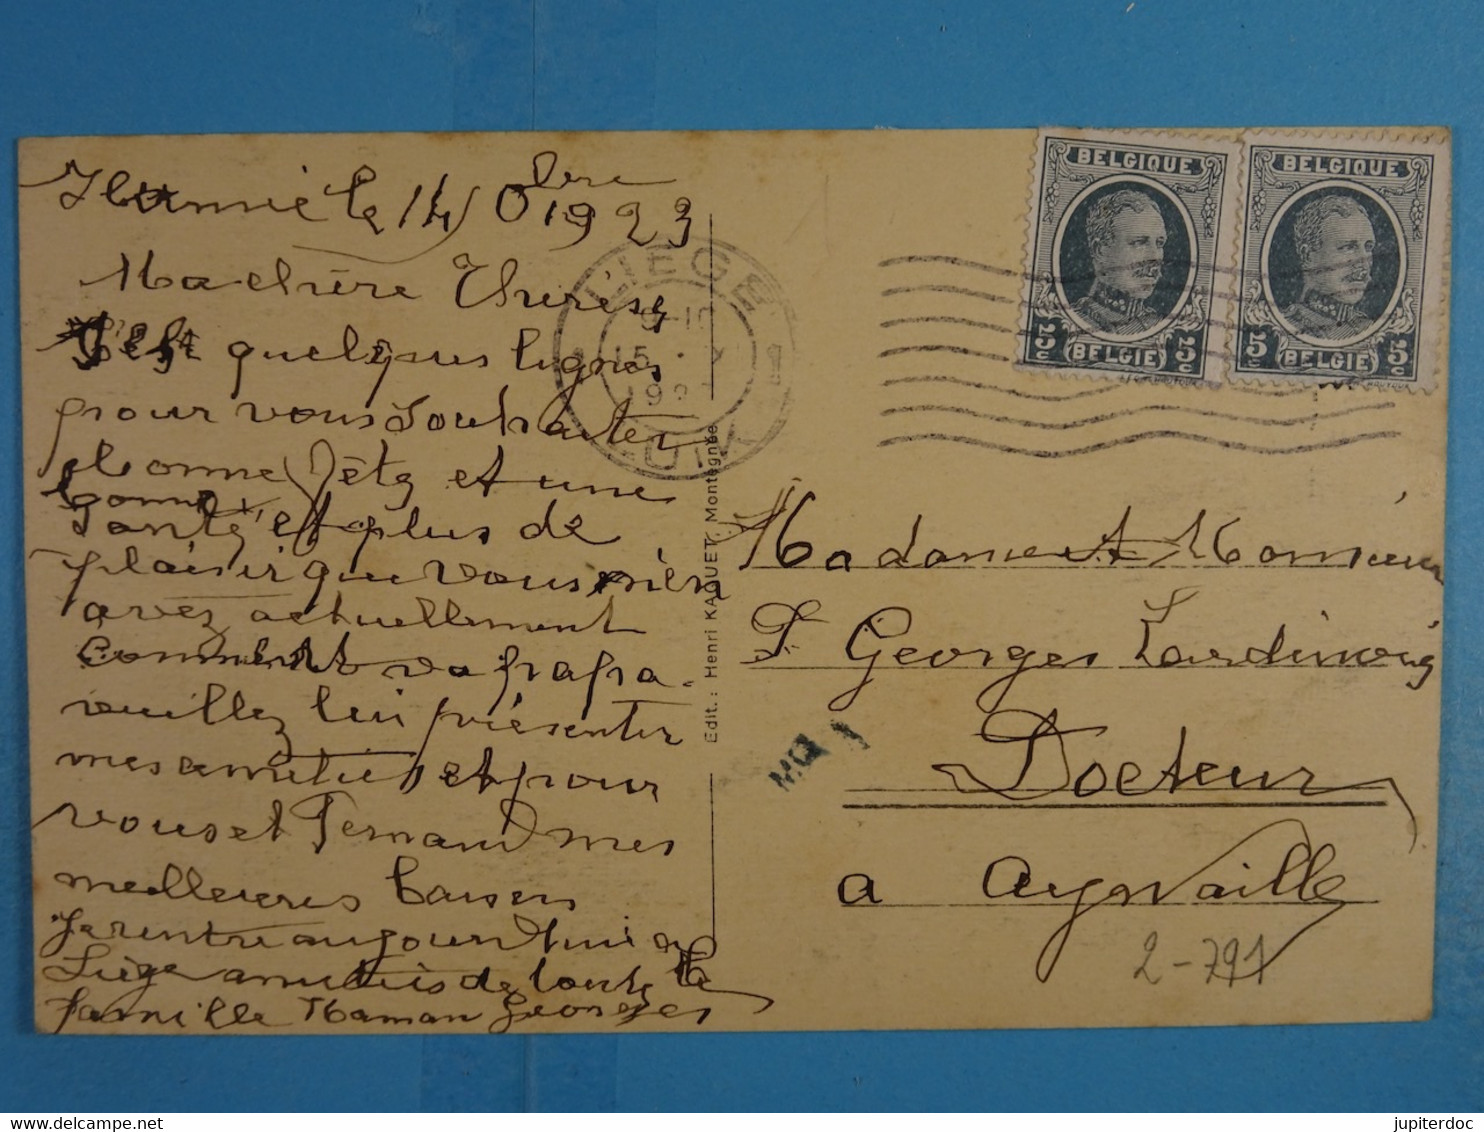 le 14 8bre 1923
Ma chère Thérèse
quelques lignes
pour vous souhaiter
bonne fête et une
bonne
santé et plus de
plaisir que vous n'en
avez actuellement
Comment va papa.
veuillez lui présenter
mes amitiés et pour
vous et Fernand mes
meilleures baisers
Je rentre aujourd'hui a
Liège amitiés de toute la
famille Maman Georges
LIEGE
9-10
15 · X
192
Edit. : Henri KAQUET, Montegnée
BELGIQUE
5c (BELGIE) 5c
BELGIQUE
5c (BELGIE) 5c
Madame et Monsieur
Georges
Docteur
a Aywaille
2-791
jupiterdoc